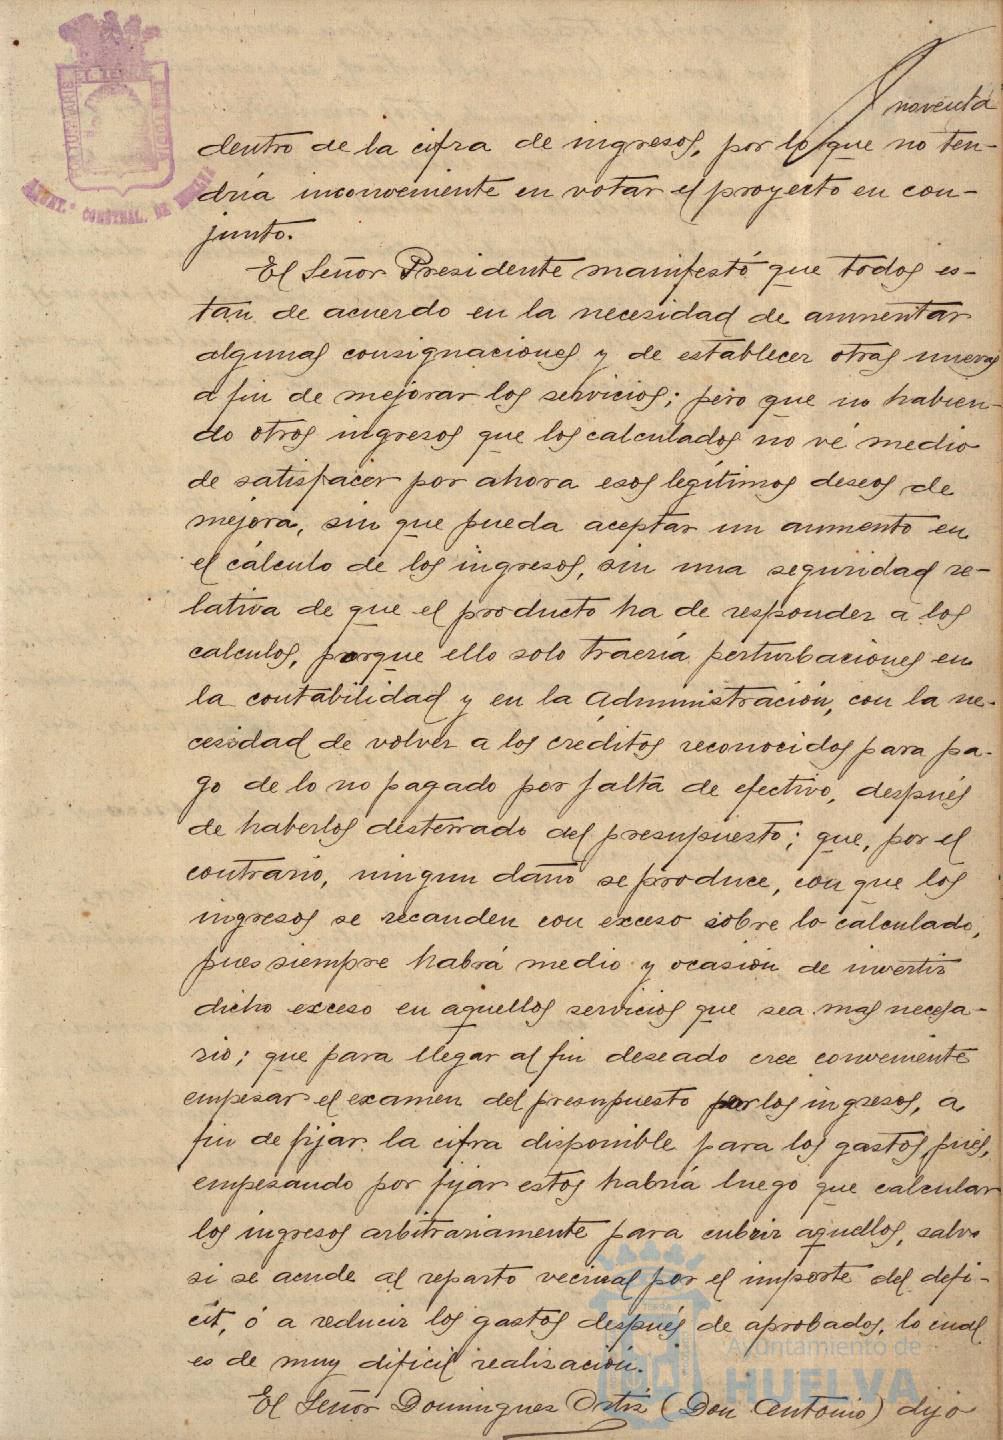 noventa
dentro de la cifra de ingresos, por lo que no ten-
dría inconveniente en votar el proyecto en con-
junto.
El Señor Presidente manifestó que todos es-
tán de acuerdo en la necesidad de aumentar
algunas consignaciones y de establecer otras nuevas
a fin de mejorar los servicios; pero que no habien-
do otros ingresos que los calculados no vé medio
de satisfacer por ahora esos legítimos deseos de
mejora, sin que pueda aceptar un aumento en
el cálculo de los ingresos, sin una seguridad re-
lativa de que el producto ha de responder a los
calculos, porque ello solo traería perturbaciones en
la contabilidad y en la Administración, con la ne-
cesidad de volver a los créditos reconocidos para pa-
go de lo no pagado por falta de efectivo, después
de haberlos desterrado del presupuesto; que, por el
contrario, ningun daño se produce, con que los
ingresos se recauden con exceso sobre lo calculado,
pues siempre habrá medio y ocasión de invertir
dicho exceso en aquellos servicios que sea mas necesa-
rio; que para llegar al fin deseado cree conveniente
empesar el examen del presupuesto por los ingresos, a
fin de fijar la cifra disponible para los gastos, pués,
empesando por fijar estos habría luego que calcular
los ingresos arbitrariamente para cubrir aquellos, salvo
si se acude al reparto vecinal por el importe del defi-
cit, ó a reducir los gastos después de aprobados, lo cual
es de muy dificil realisación.
El Señor Domingues Ortíz (Don Antonio) dijo
AYUNT.º CONSTNAL. DE HUELVA
Ayuntamiento de
HUELVA